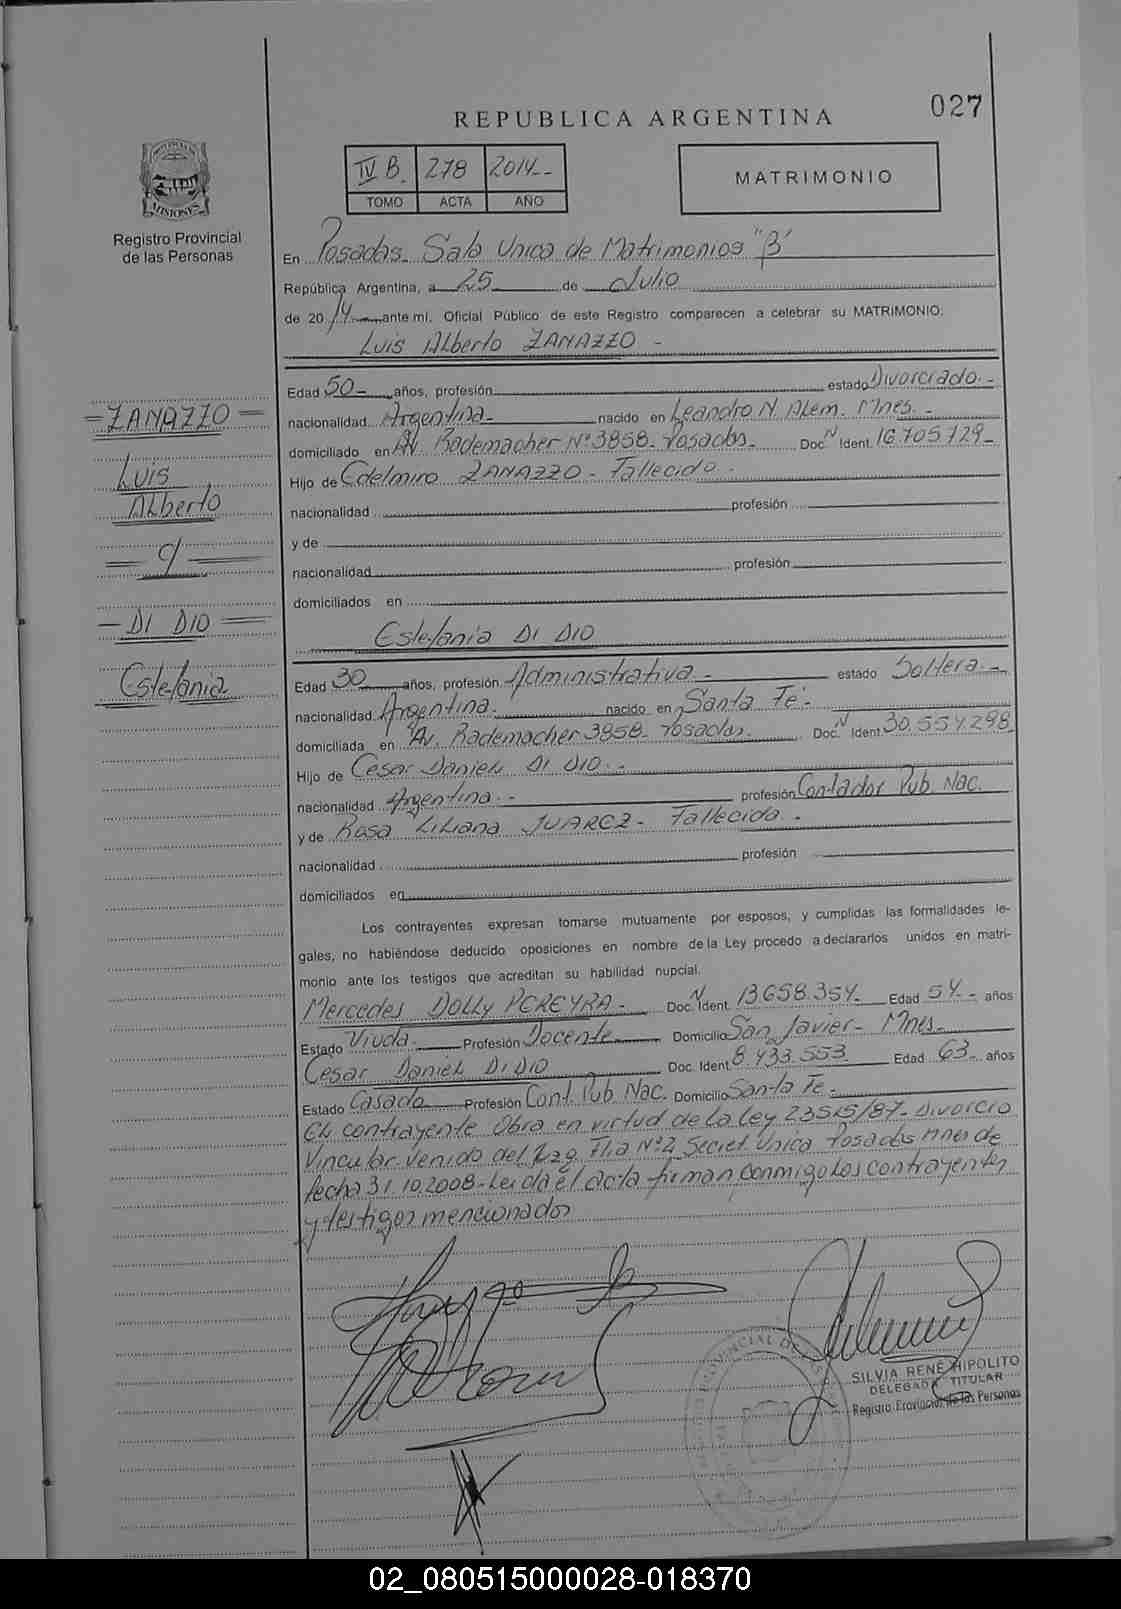 027
REPUBLICA ARGENTINA
IV B. 278 2014--
TOMO ACTA AÑO
MATRIMONIO
PROVINCIA DE
MISIONES
Registro Provincial
de las Personas
En Posadas- Sala Unica de Matrimonios "B"
República Argentina, a 25 de Julio
de 2014 ante mí, Oficial Público de este Registro comparecen a celebrar su MATRIMONIO:
Luis Alberto ZANAZZO -
Edad 50- años, profesión estado Divorciado.-
nacionalidad Argentina- nacido en Leandro N. Alem. Mnes.-
domiciliado en Av. Rademacher N° 3858- Posadas- Doc. N Ident. 16.705.129-
Hijo de Edelmiro ZANAZZO - Fallecido -
nacionalidad profesión
y de
nacionalidad profesión
domiciliados en
Estefania DI DIO
= ZANAZZO =
Luis
Alberto
= c/ =
- DI DIO =
Estefania
Edad 30 años, profesión Administrativa - estado Soltera.-
nacionalidad Argentina. nacido en Santa Fe-
domiciliada en Av. Rademacher 3858- Posadas. Doc. N Ident 30.554.298
Hijo de Cesar Daniel DI DIO.-
nacionalidad Argentina.- profesión Contador Pub. Nac.
y de Rosa Liliana JUAREZ- Fallecida -
nacionalidad profesión
domiciliados en
Los contrayentes expresan tomarse mutuamente por esposos, y cumplidas las formalidades le-
gales, no habiéndose deducido oposiciones en nombre de la Ley procedo a declararlos unidos en matri-
monio ante los testigos que acreditan su habilidad nupcial.
Mercedes DOLLY PEREYRA - Doc. N Ident. 13.658.354- Edad 54- años
Estado Viuda Profesión Docente Domicilio San Javier- Mnes-
Cesar Daniel DI DIO Doc. Ident 8.433.553 Edad 63 años
Estado Casado Profesión Cont. Pub. Nac. Domicilio Santa Fe -
El contrayente Obra en virtud de la Ley 23515/87- Divorcio
Vincular- venido del Juzg. Flia N°2 Secret. Unica Posadas Mnes de
fecha 31.10.2008- Leida el acta firman conmigo los contrayentes
y testigos mencionados
SILVIA RENE HIPOLITO
DELEGADA TITULAR
Registro Provincial de las Personas
02_080515000028-018370